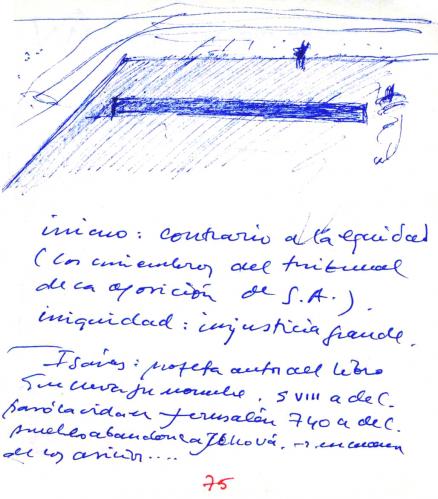 inicuo: contrario a la equidad
(los miembros del tribunal
de la oposición de S.A.).
iniquidad: injusticia grande.
Isaías: profeta autor del libro
que lleva su nombre. S VIII a de C.
pasó la vida en Jerusalén 740 a de C.
pueblo abandona a Jehová.
de los asirios....
75